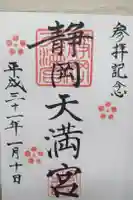 参拝記念
静岡天満宮
平成二十一年一月十日